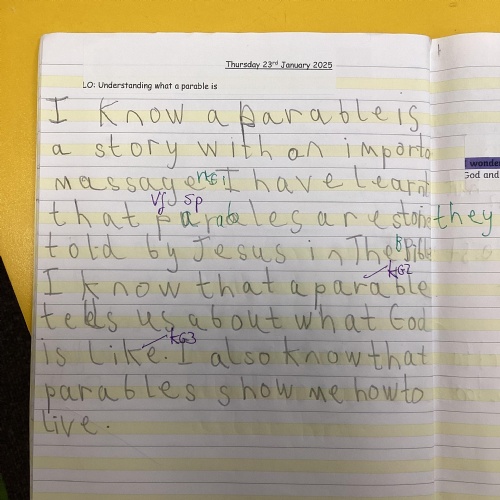 Thursday 23rd January 2025
LO: Understanding what a parable is
I know a parable is
a story with an importa
massage. I have learnt
VF SP
that parables are storie they
told by Jesus in The Bible
KG2
I know that a parable
tells us about what God
KG3
is like. I also know that
parables show me how to
live.
wonder
God and